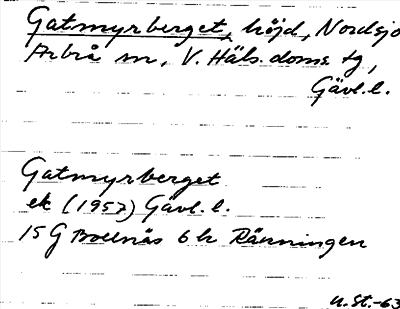 Gatmyrberget, höjd, Nordsjö
Arbrå sn, V. Häls. doms. tg,
Gävl. l.
Gatmyrberget
ek (1957) Gävl. l.
15 G Bollnäs 6 h Ränningen
U. St. -63